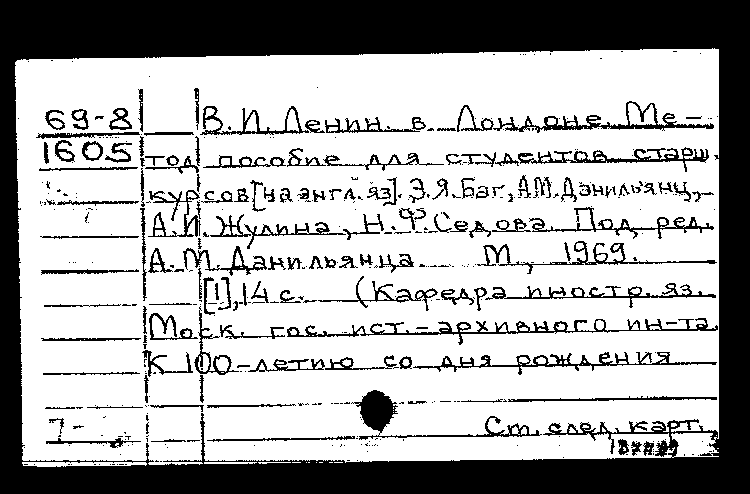 69-8 В. И. Ленин. в Лондоне. Ме-
1605 тод пособие для студентов старш.
курсов [на англ. яз]. Э.Я.Баг, А.М.Данильянц,
А.И. Жулина, Н.Ф.Седова. Под ред.
А.М.Данильянца. М., 1969.
[1], 14 с. (Кафедра иностр. яз.
Моск. гос. ист.-архивного ин-та.
К 100-летию со дня рождения
7-
См. след. карт.